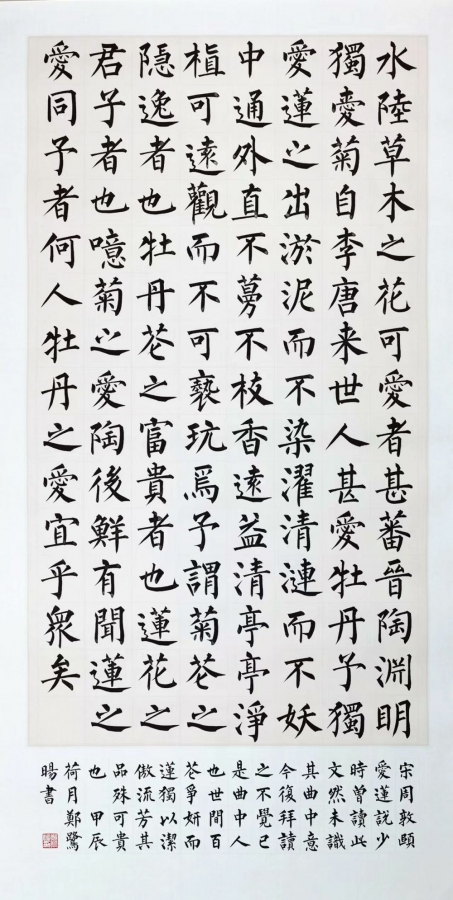 水陸草木之花可愛者甚蕃晉陶淵明
獨愛菊自李唐来世人甚愛牡丹予獨
愛蓮之出淤泥而不染濯清漣而不妖
中通外直不蔓不枝香遠益清亭亭淨
植可遠觀而不可褻玩焉予謂菊花之
隱逸者也牡丹花之富貴者也蓮花之
君子者也噫菊之愛陶後鮮有聞蓮之
愛同予者何人牡丹之愛宜乎眾矣
宋周敦頤
愛蓮説少
時曾讀此
文然未識
其曲中意
今復拜讀
之不覺已
是曲中人
也世間百
花爭妍而
蓮獨以潔
傲流芳其
品殊可貴
也 甲辰
荷月鄭鷺
暘書